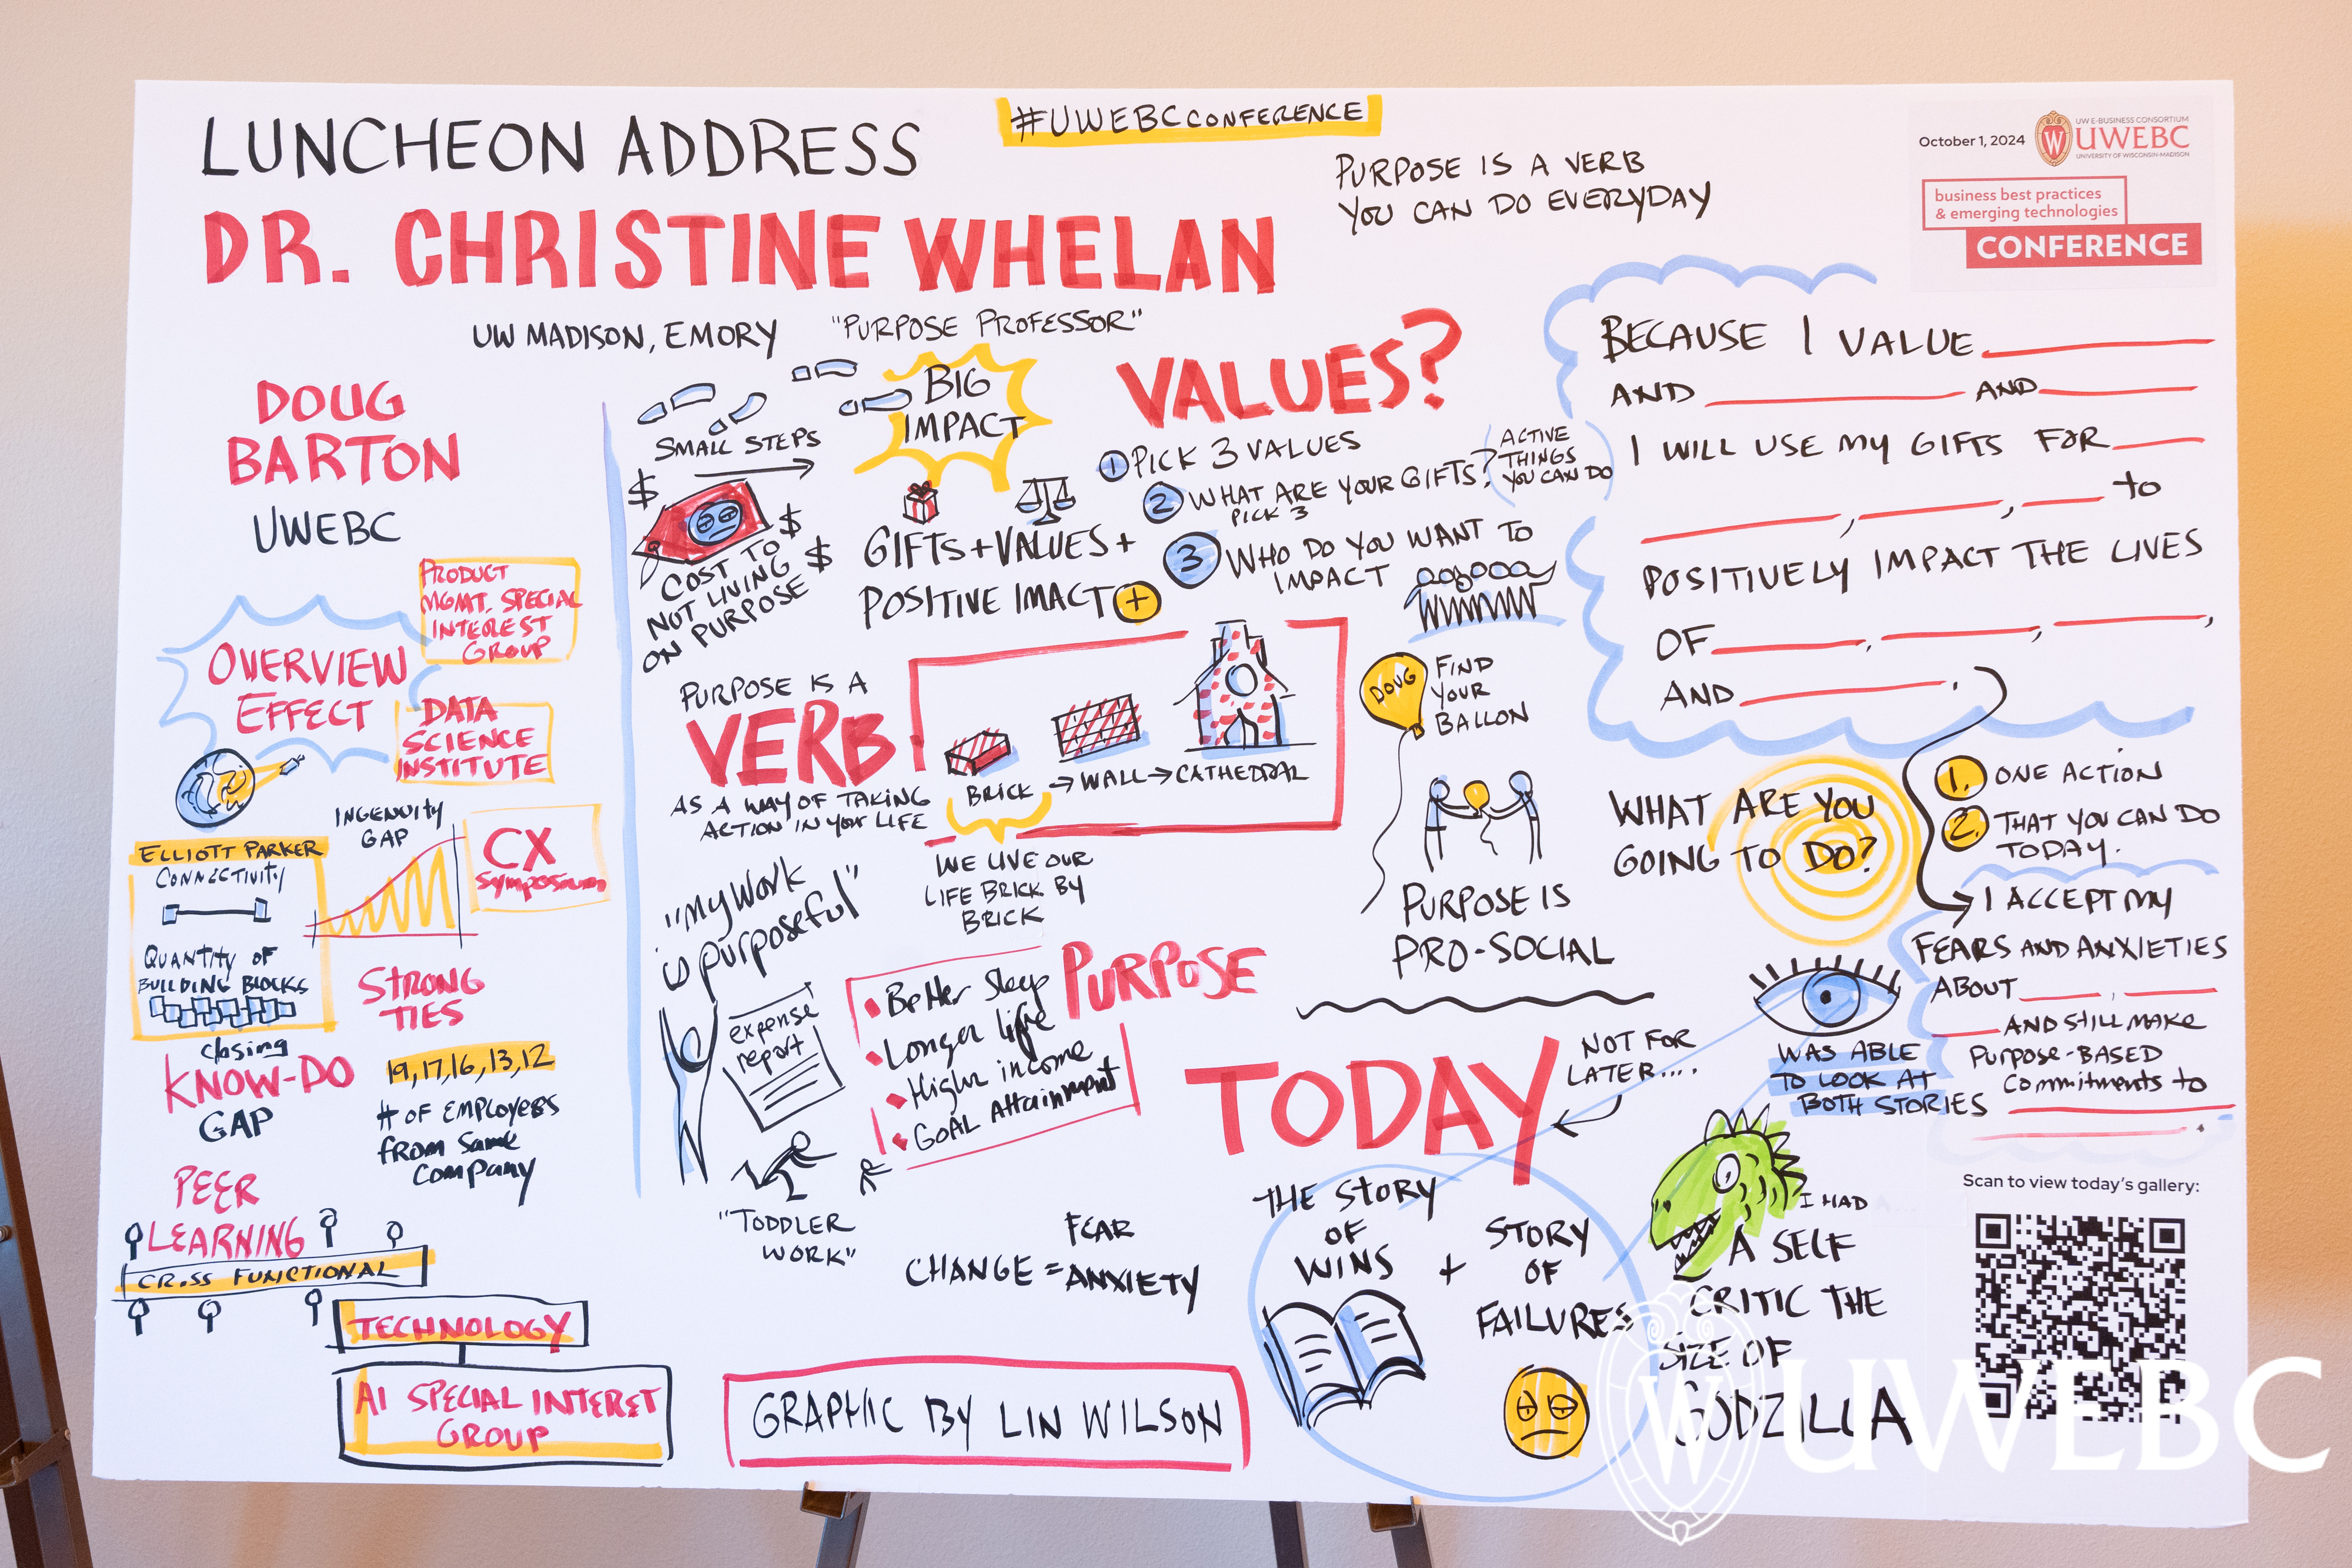 LUNCHEON ADDRESS
#UWEBCCONFERENCE
DR. CHRISTINE WHELAN
UW MADISON, EMORY "PURPOSE PROFESSOR"
PURPOSE IS A VERB
YOU CAN DO EVERYDAY
October 1, 2024
UW E-BUSINESS CONSORTIUM
UWEBC
UNIVERSITY OF WISCONSIN-MADISON
business best practices
& emerging technologies
CONFERENCE
DOUG
BARTON
UWEBC
PRODUCT
MGMT. SPECIAL
INTEREST
GROUP
OVERVIEW
EFFECT
DATA
SCIENCE
INSTITUTE
INGENUITY
GAP
CX
Symposium
ELLIOTT PARKER
CONNECTIVITY
QUANTITY OF
BUILDING BLOCKS
STRONG
TIES
closing
KNOW-DO
GAP
19,17,16,13,12
# OF EMPLOYEES
FROM SAME
COMPANY
PEER
LEARNING
CROSS FUNCTIONAL
TECHNOLOGY
AI SPECIAL INTEREST
GROUP
SMALL STEPS
BIG
IMPACT
$
$
$
COST TO
NOT LIVING
ON PURPOSE
GIFTS+VALUES+
POSITIVE IMACT +
VALUES?
1 PICK 3 VALUES
2 WHAT ARE YOUR GIFTS?
PICK 3
ACTIVE
THINGS
YOU CAN DO
3 WHO DO YOU WANT TO
IMPACT
PURPOSE IS A
VERB
AS A WAY OF TAKING
ACTION IN YOUR LIFE
BRICK → WALL → CATHEDRAL
WE LIVE OUR
LIFE BRICK BY
BRICK
DOUG
FIND
YOUR
BALLON
PURPOSE IS
PRO-SOCIAL
"MY WORK
is purposeful"
expense
report
PURPOSE
Better Sleep
Longer life
Higher income
GOAL Attainment
"TODDLER
WORK"
FEAR
CHANGE = ANXIETY
TODAY
NOT FOR
LATER....
THE STORY
OF
WINS
+
STORY
OF
FAILURES
GRAPHIC BY LIN WILSON
BECAUSE I VALUE
AND AND
I WILL USE MY GIFTS FOR
, , to
POSITIVELY IMPACT THE LIVES
OF , , ,
AND .
WHAT ARE YOU
GOING TO DO?
1. ONE ACTION
2. THAT YOU CAN DO
TODAY.
I ACCEPT MY
FEARS AND ANXIETIES
ABOUT ,
AND STILL MAKE
PURPOSE-BASED
COMMITMENTS TO
.
WAS ABLE
TO LOOK AT
BOTH STORIES
I HAD
A SELF
CRITIC THE
SIZE OF
GODZILLA
Scan to view today's gallery:
W UWEBC